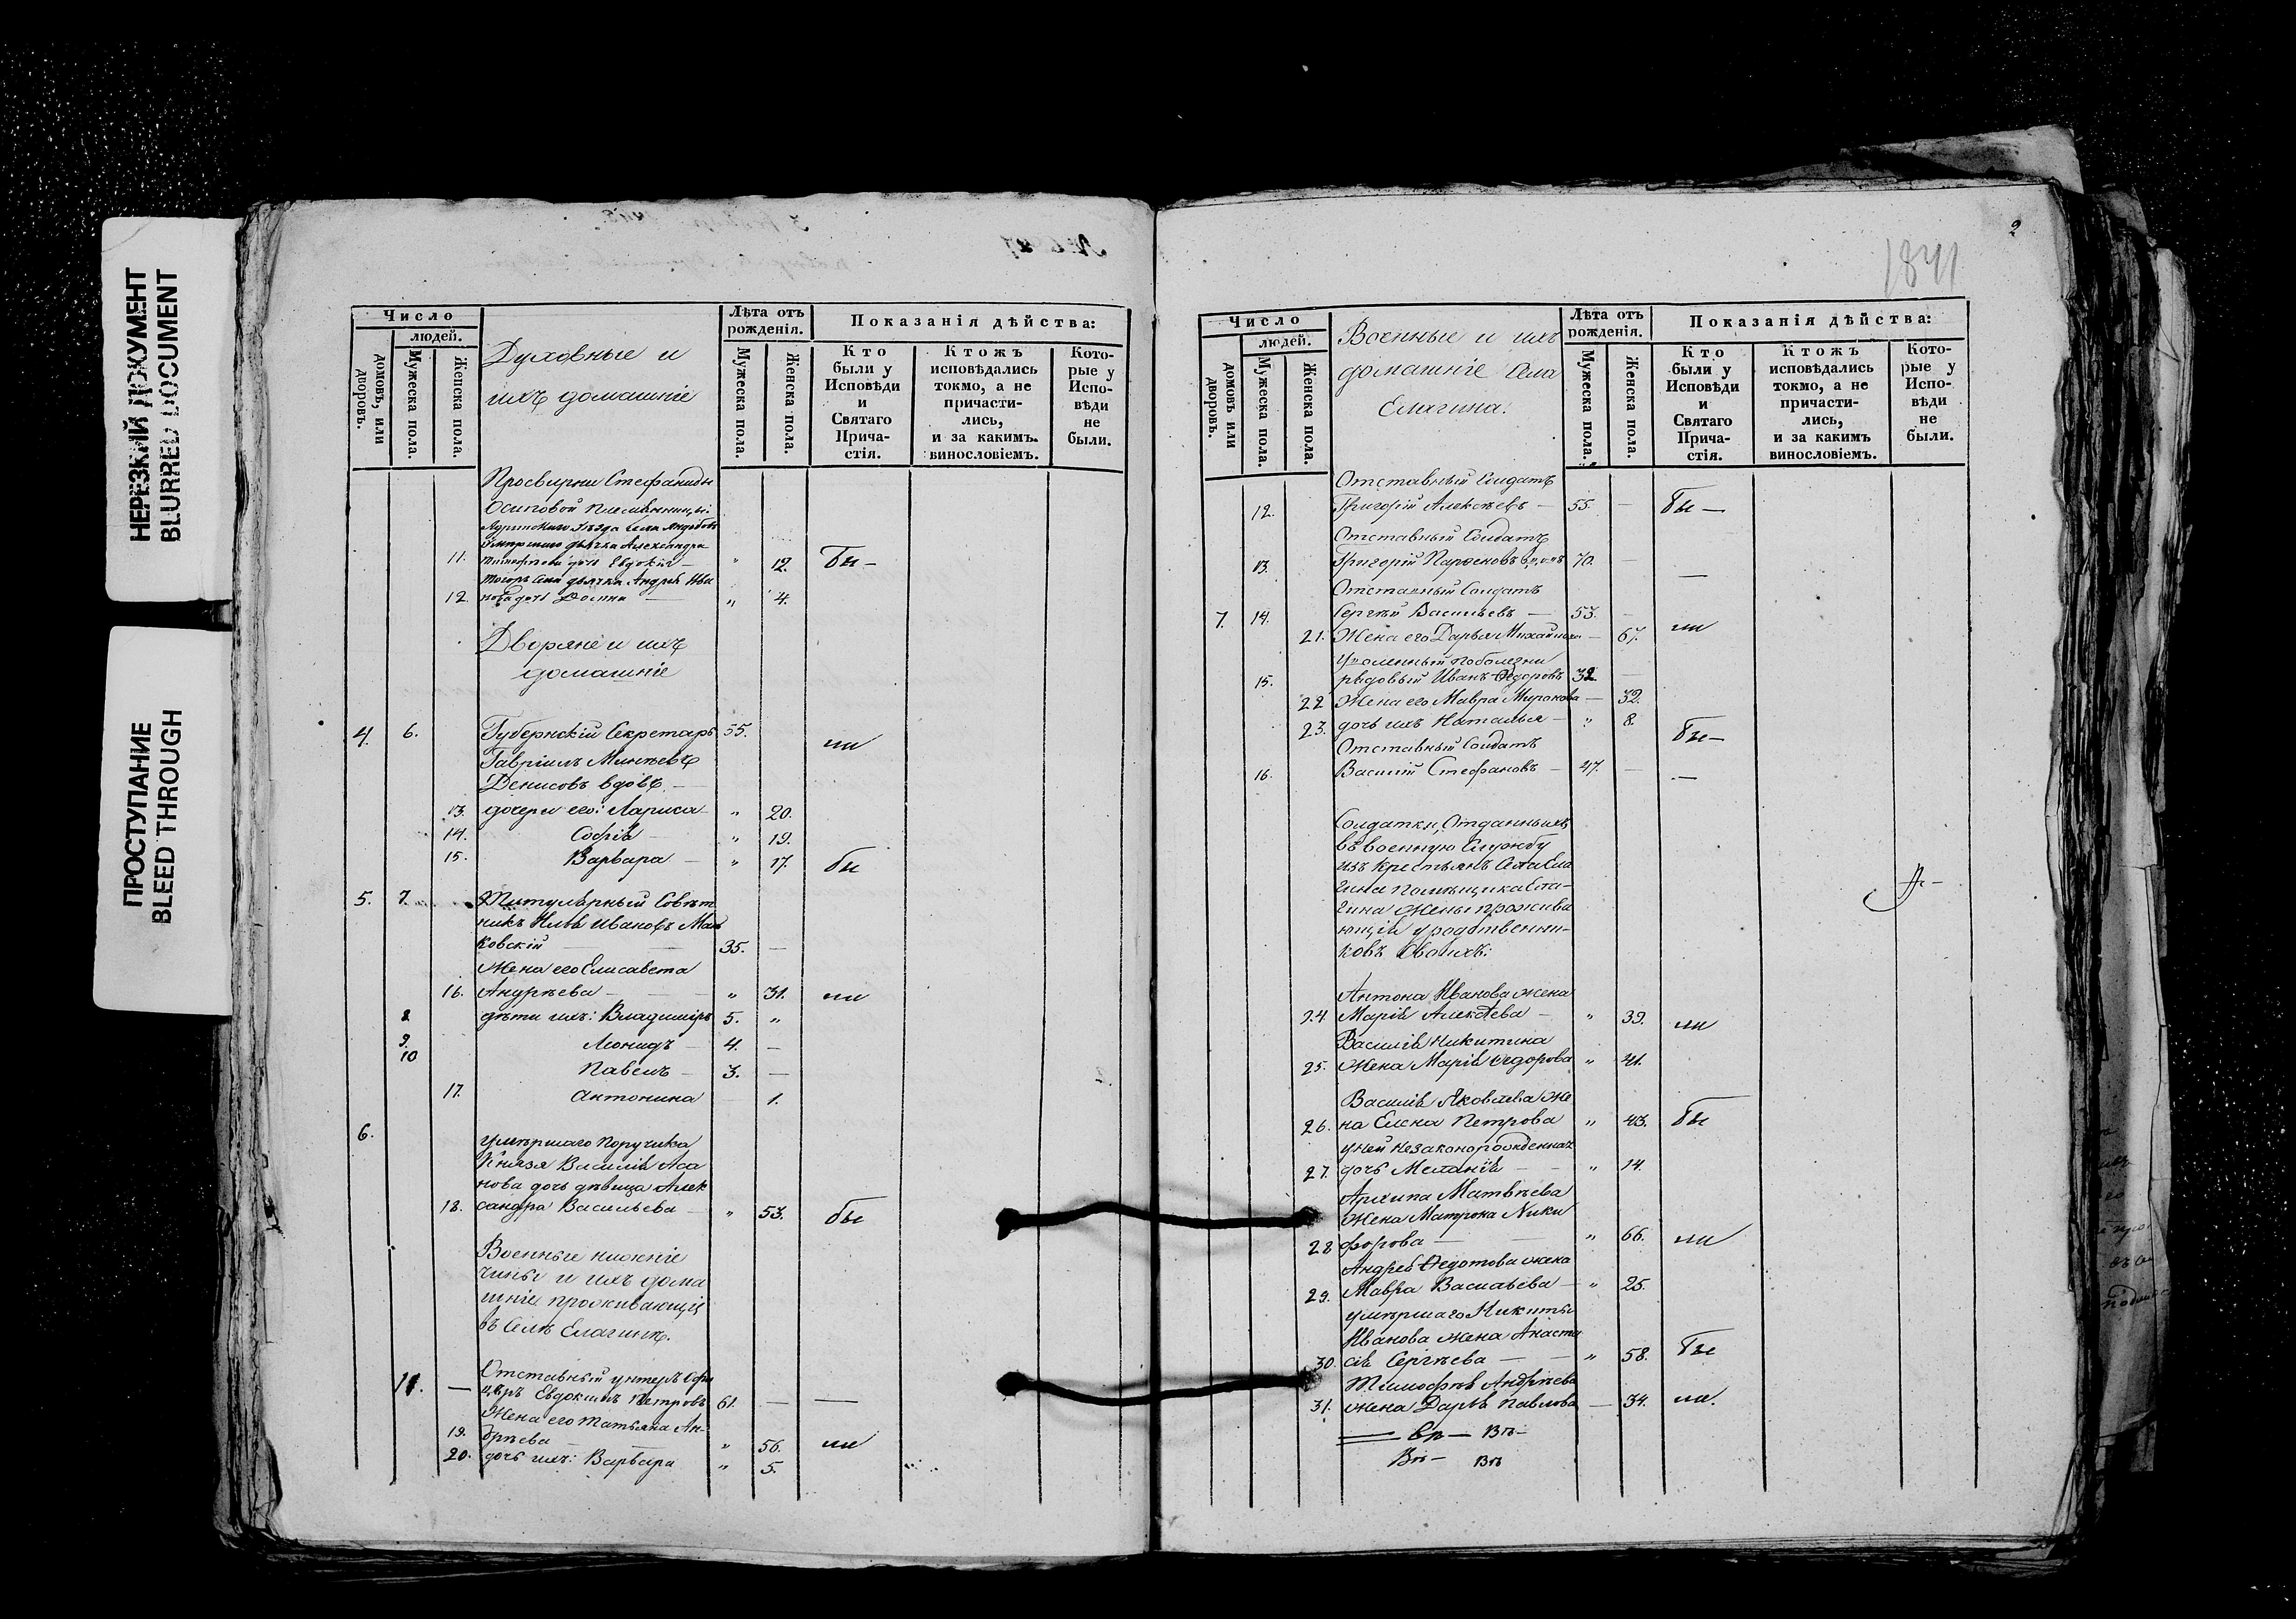 НЕРЕЗКИЙ ДОКУМЕНТ
BLURRED DOCUMENT
ПРОСТУПАНИЕ
BLEED THROUGH
Число
людей.
домовъ, или дворовъ.
Мужеска пола.
Женска пола.
Духовные и
ихъ домашніе
Лѣта отъ рожденія.
Мужеска пола.
Женска пола.
Показанія дѣйства:
Кто были у Исповѣди и Святаго Прича-стія.
Ктожъ исповѣдались токмо, а не причасти-лись, и за какимъ винословіемъ.
Кото-рые у Испо-вѣди не были.
Просвирни Стефаниды
Осиповой племянницы:
умершаго дьячка Александра
11. Тимофеева дочь Евдокія — " 12. Бы —
тогожъ села дьячка Андрея Ива
12. нова дочь Домна — " 4.
Дворяне и ихъ
домашніе
4. 6. Губернскій Секретарь 55. ли
Гавріилъ Минѣевъ
Денисовъ вдовъ —
13. дочери его: Лариса — " 20.
14. Софія — " 19.
15. Варвара — " 17. бы
5. 7. Титулярный Совѣт
никъ Иванов
ковскій — 35. —
Жена его Елисавета
16. Андрѣева — " 31. ли
8. дѣти ихъ: Владиміръ 5. "
9. Леонидъ — 4. —
10 Павелъ — 3. —
17. Антонина — 1.
6.
умершаго Поручика
Князя Василія Аса
нова дочь дѣвица Алек
18. сандра Васильева — " 53. бы
Военные нижніе
чины и ихъ дома
шніе проживающіе
въ селѣ Елагинѣ.
Отставный унтеръ Офи
11. — церъ Евдокимъ Петровъ 61. — —
Жена его Татьяна Ан-
19. дрѣева — " 56. ли
20. дочь ихъ: Варвара " 5.
2
1841
Число
людей.
домовъ или дворовъ.
Мужеска пола.
Женска пола.
Военные и ихъ
домашніе Села
Елагина.
Лѣта отъ рожденія.
Мужеска пола.
Женска пола.
Показанія дѣйства:
Кто были у Исповѣди и Святаго Прича-стія.
Ктожъ исповѣдались токмо, а не причасти-лись, и за какимъ винословіемъ.
Кото-рые у Испо-вѣди не были.
Отставный Солдатъ
12. Григорій Алексѣевъ — 55. — Бы —
Отставный Солдатъ
13. Григорій Парфеновъ 70. — —
Отставный Солдатъ
7. 14. Сергѣй Васильевъ — 53. —
21. Жена его Дарья Михайлова — 67. ли
Уволенный по болезни
15. рядовый Иванъ Ѳедоровъ 32. —
22 Жена его Мавра Миронова — 32.
23. дочь ихъ Наталья — " 8. Бы —
Отставный Солдатъ
16. Василій Стефановъ — 47. — —
Солдатки, Отданныхъ
въ военную Службу
изъ крестьянъ Села Ела
гина помѣщика Ела-
гина жены прожива
ющія у родственни-
ковъ своихъ:
Антона Иванова жена
24. Марія Алексѣева — " 39. ли
Василія Никитина
25. жена Марія Ѳедорова " 41.
Василія Яковлева же
26. на Елена Петрова " 43. бы
у ней незаконорожденная
27. дочь Меланія — " 14.
Архипа Матвѣева
жена Матрона Ники
28 форова — " 66. ли
Андрея Ѳедотова жена
29. Мавра Васильева — " 25.
умершаго Никиты
Иванова жена Анаста
30. сія Сергѣева — " 58. бы
Тимофея Андрѣева
31. жена Дарья Павлова — 34. ли.